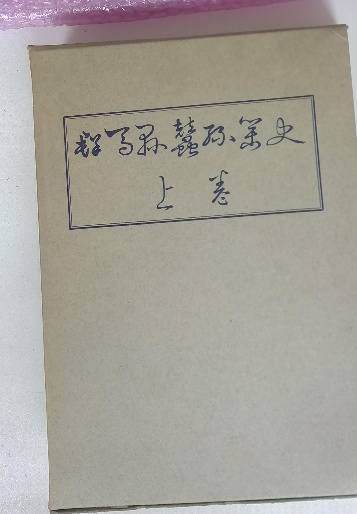 群馬県蠶絲業史
上巻